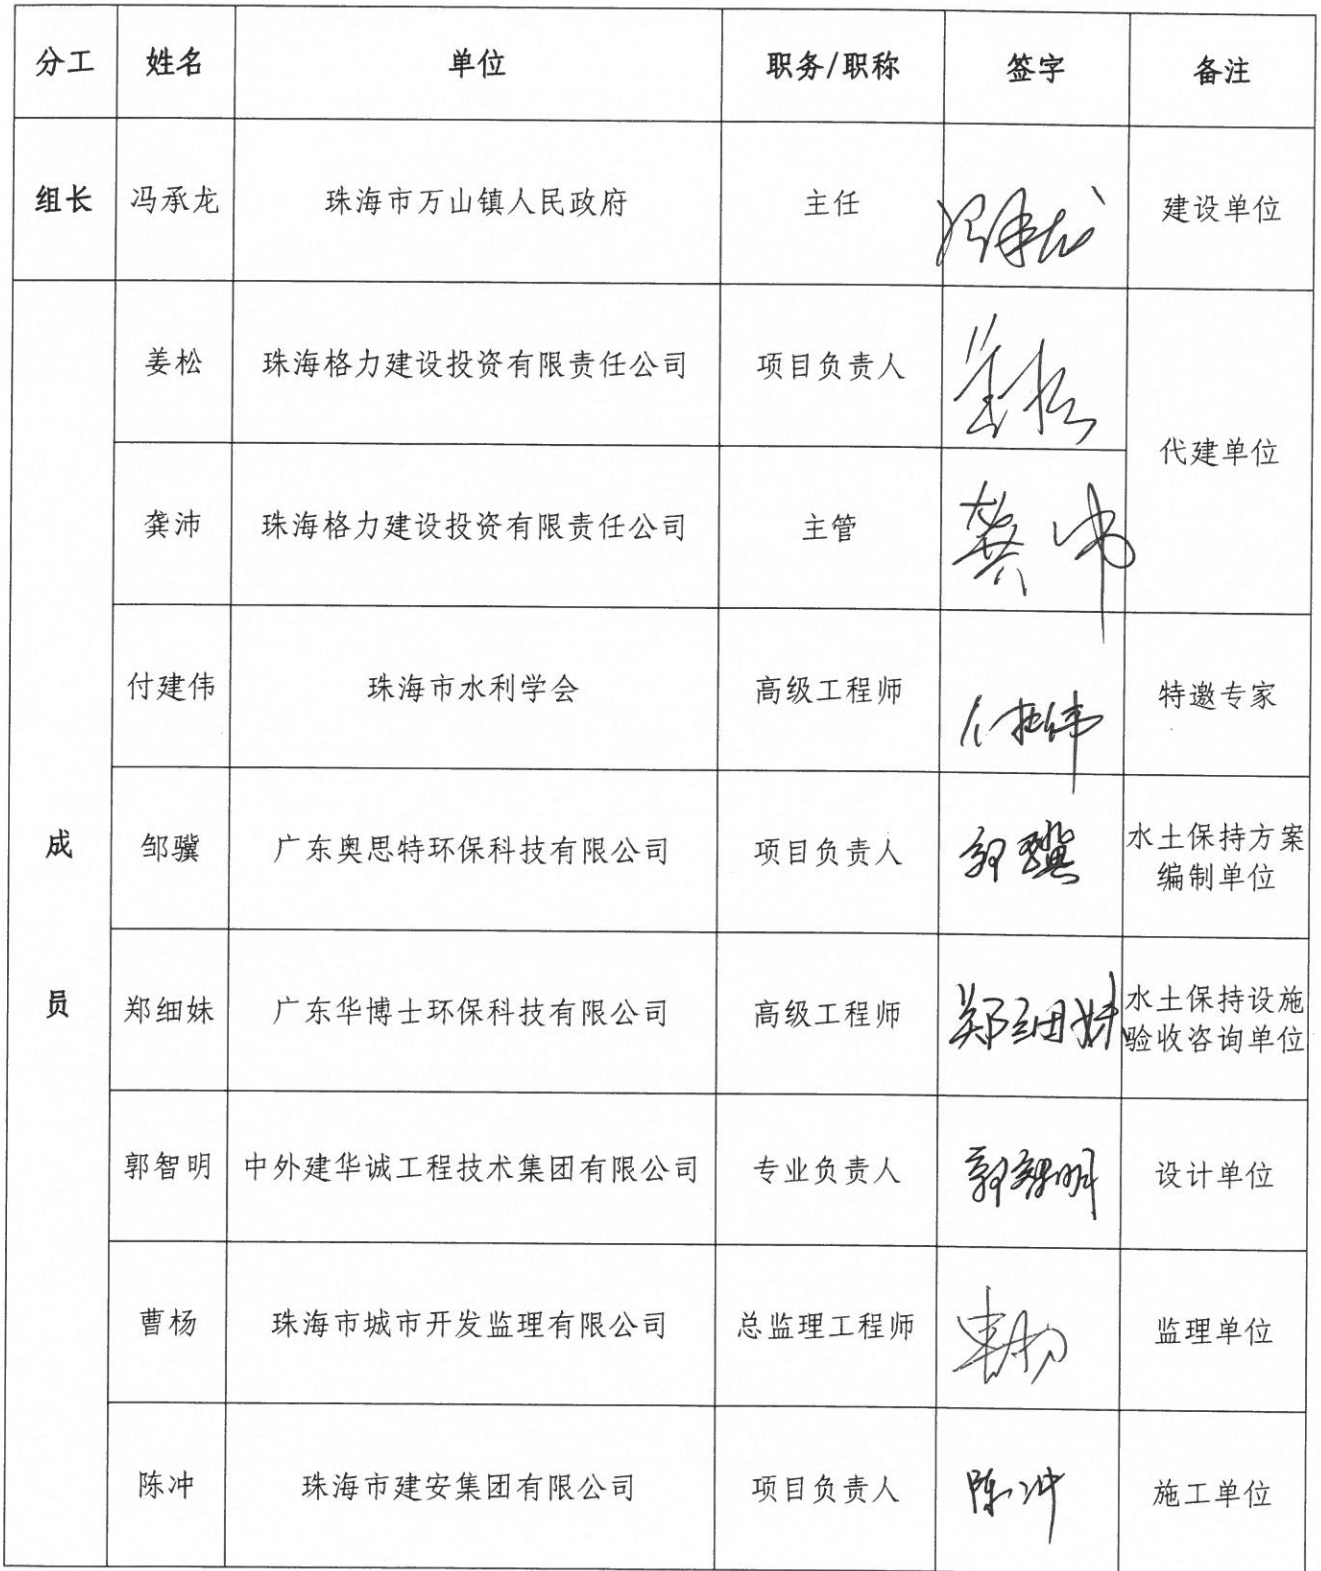 分工 姓名 单位 职务/职称 签字 备注
组长 冯承龙 珠海市万山镇人民政府 主任 冯承龙 建设单位
姜松 珠海格力建设投资有限责任公司 项目负责人 姜松
代建单位
龚沛 珠海格力建设投资有限责任公司 主管 龚沛
付建伟 珠海市水利学会 高级工程师 付建伟 特邀专家
成
邹骥 广东奥思特环保科技有限公司 项目负责人 邹骥 水土保持方案
编制单位
员
郑细妹 广东华博士环保科技有限公司 高级工程师 郑细妹 水土保持设施
验收咨询单位
郭智明 中外建华诚工程技术集团有限公司 专业负责人 郭智明 设计单位
曹杨 珠海市城市开发监理有限公司 总监理工程师 曹杨 监理单位
陈冲 珠海市建安集团有限公司 项目负责人 陈冲 施工单位